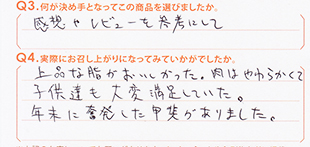 Q3.何が決め手となってこの商品を選びましたか。
感想やレビューを参考にして
Q4.実際にお召し上がりになってみていかがでしたか。
上品な脂がおいしかった。肉はやわらかくて
子供達も大変満足していた。
年末に奮発した甲斐がありました。